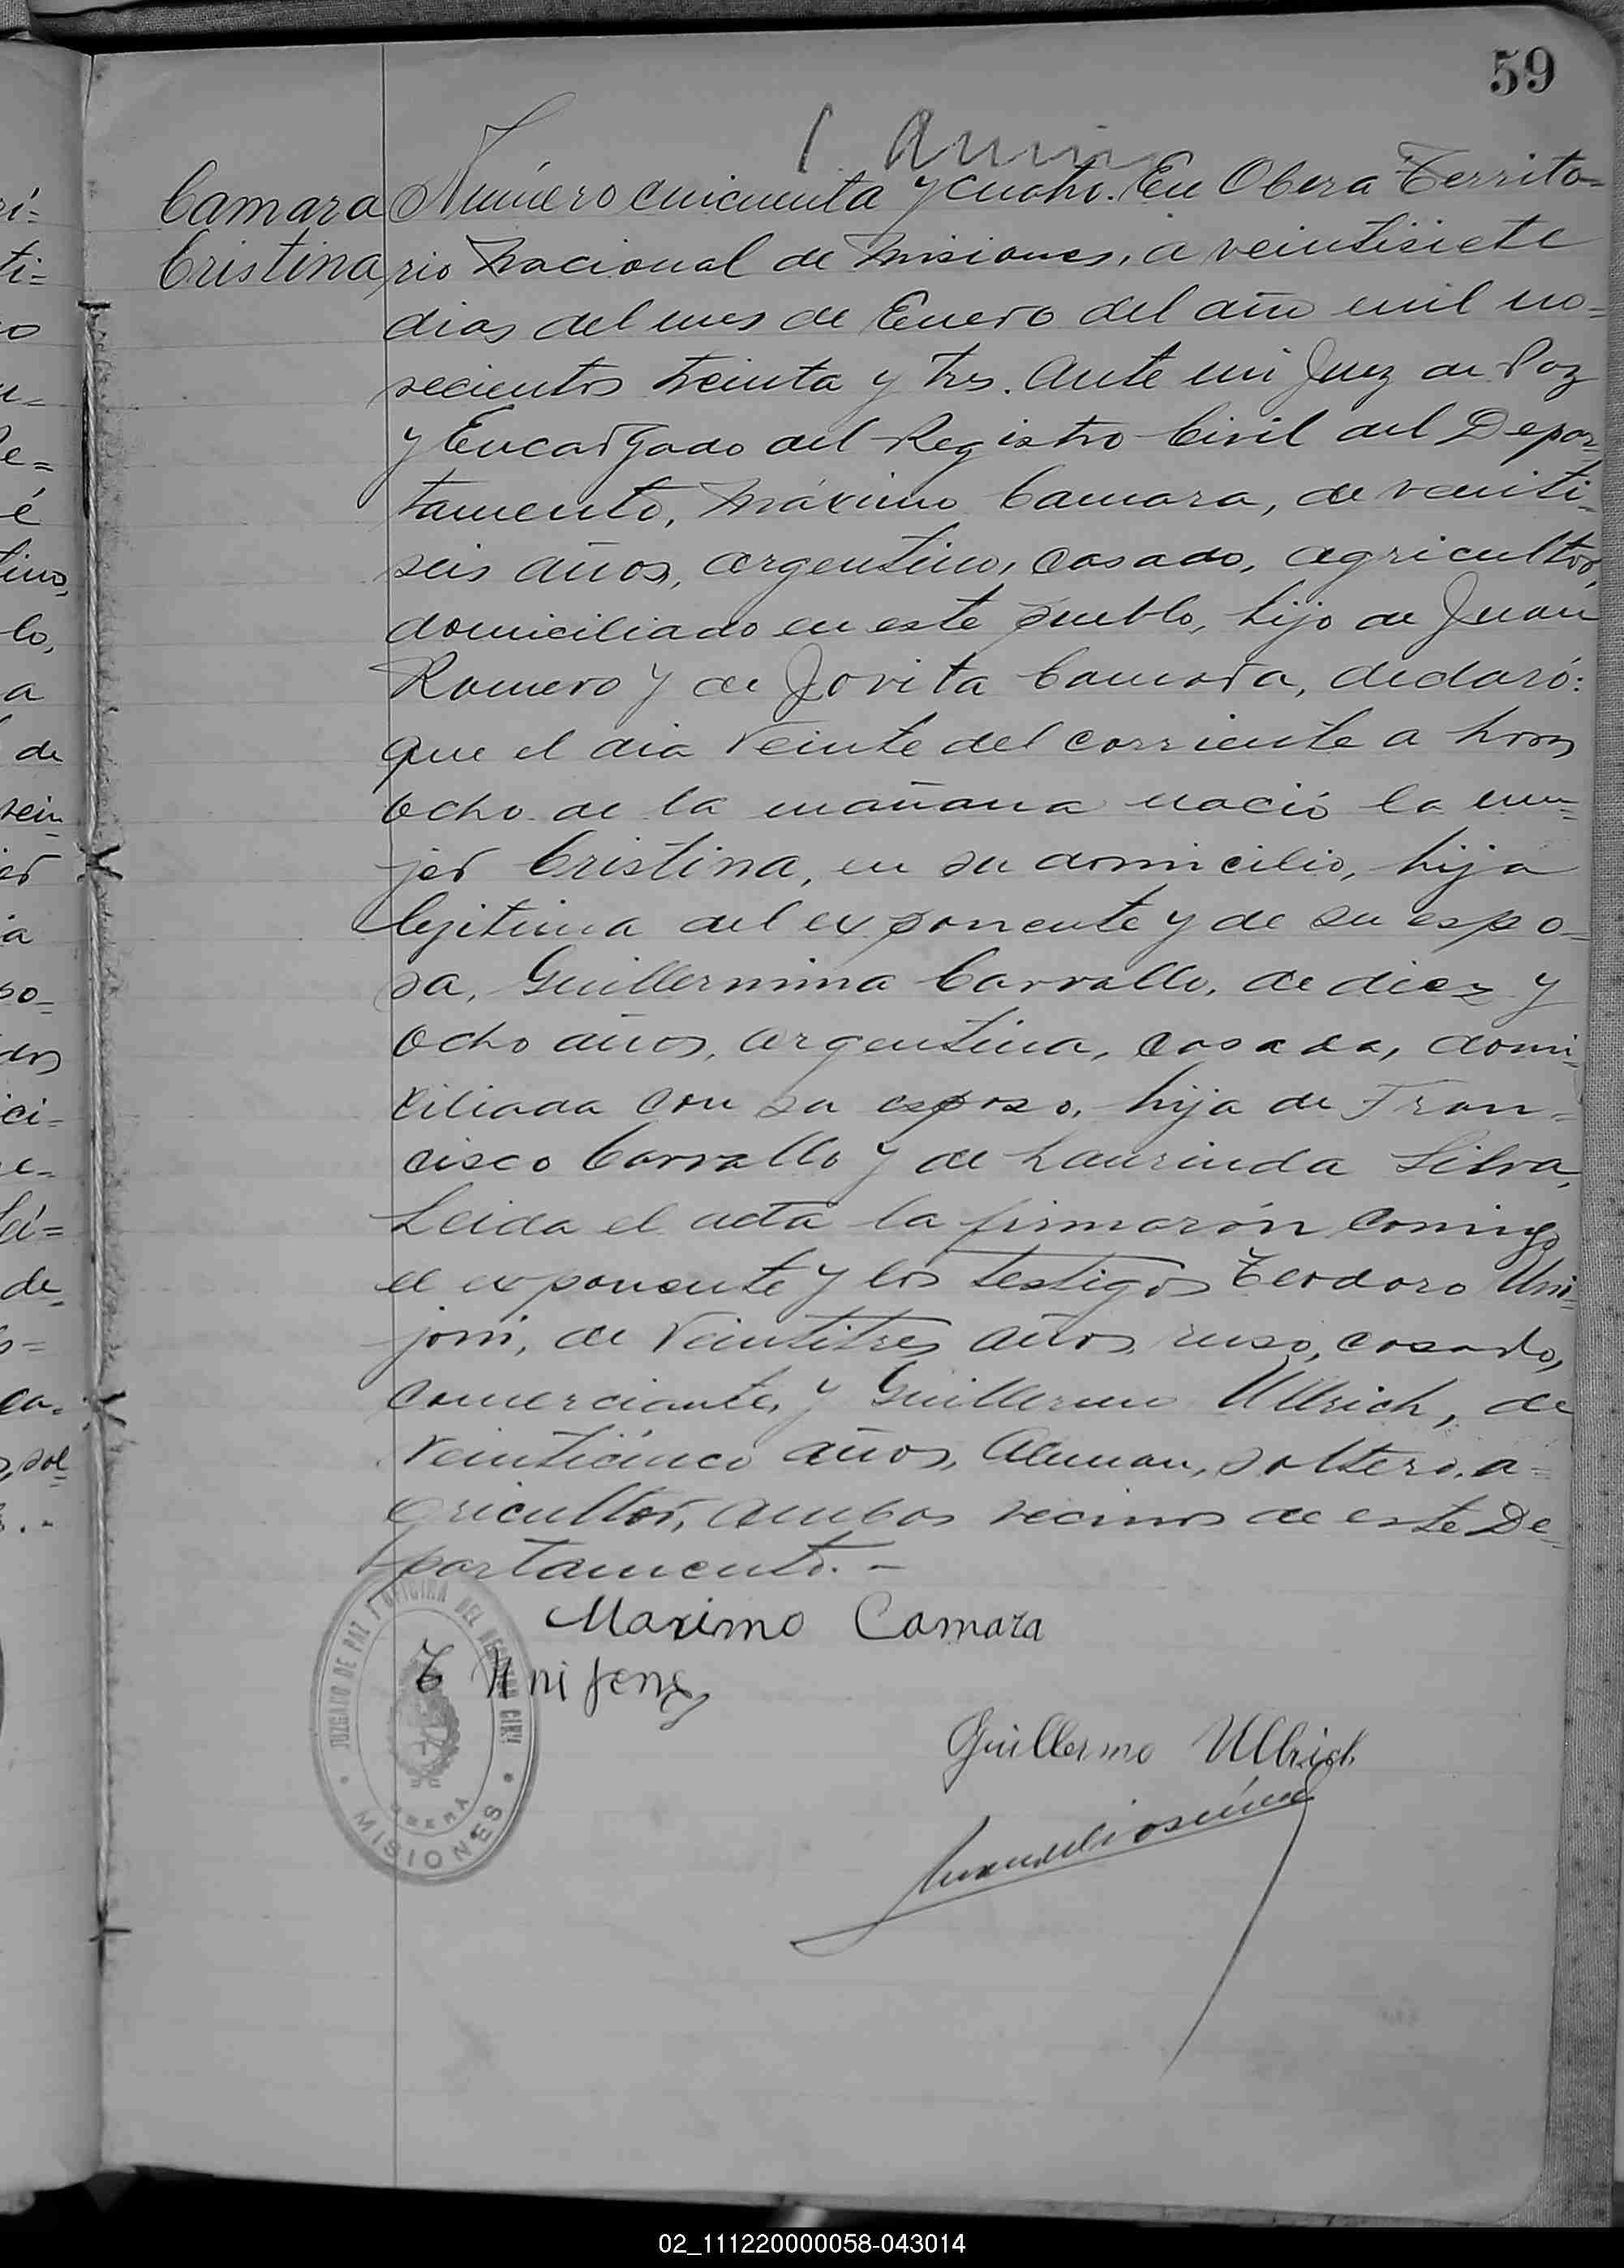 59
Camara
Cristina
Número cuicuenta y cuatro. En Obera Territo=
rio Nacional de Misiones, a veintisiete
dias del mes de Enero del año mil no=
vecientos treinta y tres. Ante mi Juez de Paz
y Encargado del Registro Civil del Depar=
tamento, Máximo Camara, de veinti=
seis años, argentino, casado, agricultor,
domiciliado en este pueblo, hijo de Juan
Romero y de Jovita Camara, declaró:
que el dia veinte del corriente a horas
ocho de la mañana nació la mu=
jer Cristina, en su domicilio, hija
legitima del exponente y de su espo=
sa, Guillermina Carvallo, de diez y
ocho años, argentina, casada, domi=
ciliada con su esposo, hija de Fran=
cisco Carvallo y de Laurinda Silva,
Leida el acta la firmarón comigo
el exponente y los testigos Teodoro Uni=
joni, de veintitres años, ruso, casado,
comerciante, y Guillermo Ullrich, de
veinticinco años, Aleman, soltero, a=
gricultor, ambos vecinos de este De=
partamento. -
Maximo Camara
T
Guillermo Ullrich
JUZGADO DE PAZ Y OFICINA DEL REGISTRO CIVIL
OBERÁ
MISIONES
02_111220000058-043014